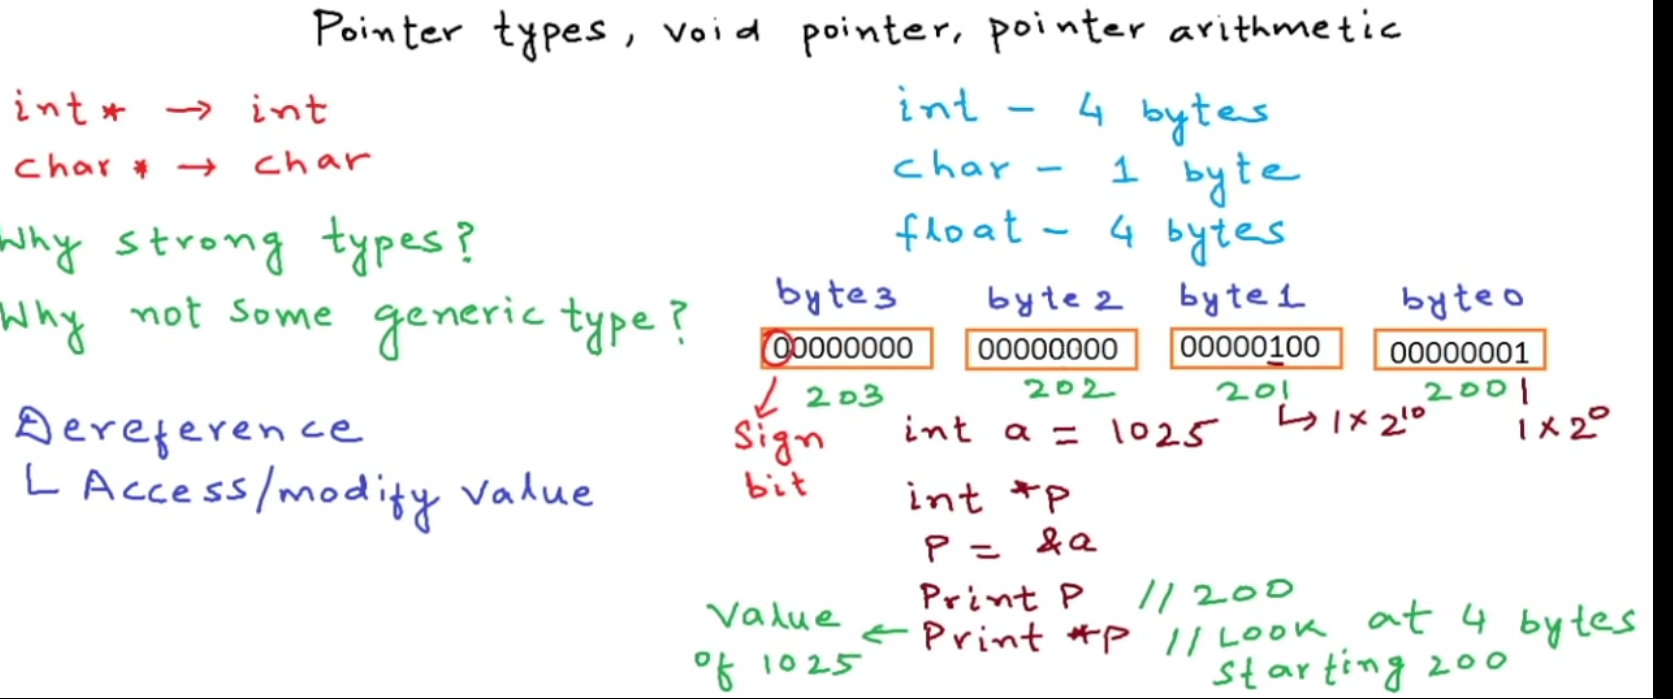 Pointer types, void pointer, pointer arithmetic
int* → int
char* → char
Why strong types?
Why not some generic type?
Dereference
└ Access/modify value
int - 4 bytes
char - 1 byte
float - 4 bytes
byte3 byte2 byte1 byte0
00000000 00000000 00000100 00000001
203 202 201 200
sign
bit
int a = 1025 ↳ 1×2^10 1×2^0
int *p
P = &a
Print P // 200
Value ← Print *p // Look at 4 bytes
of 1025 starting 200